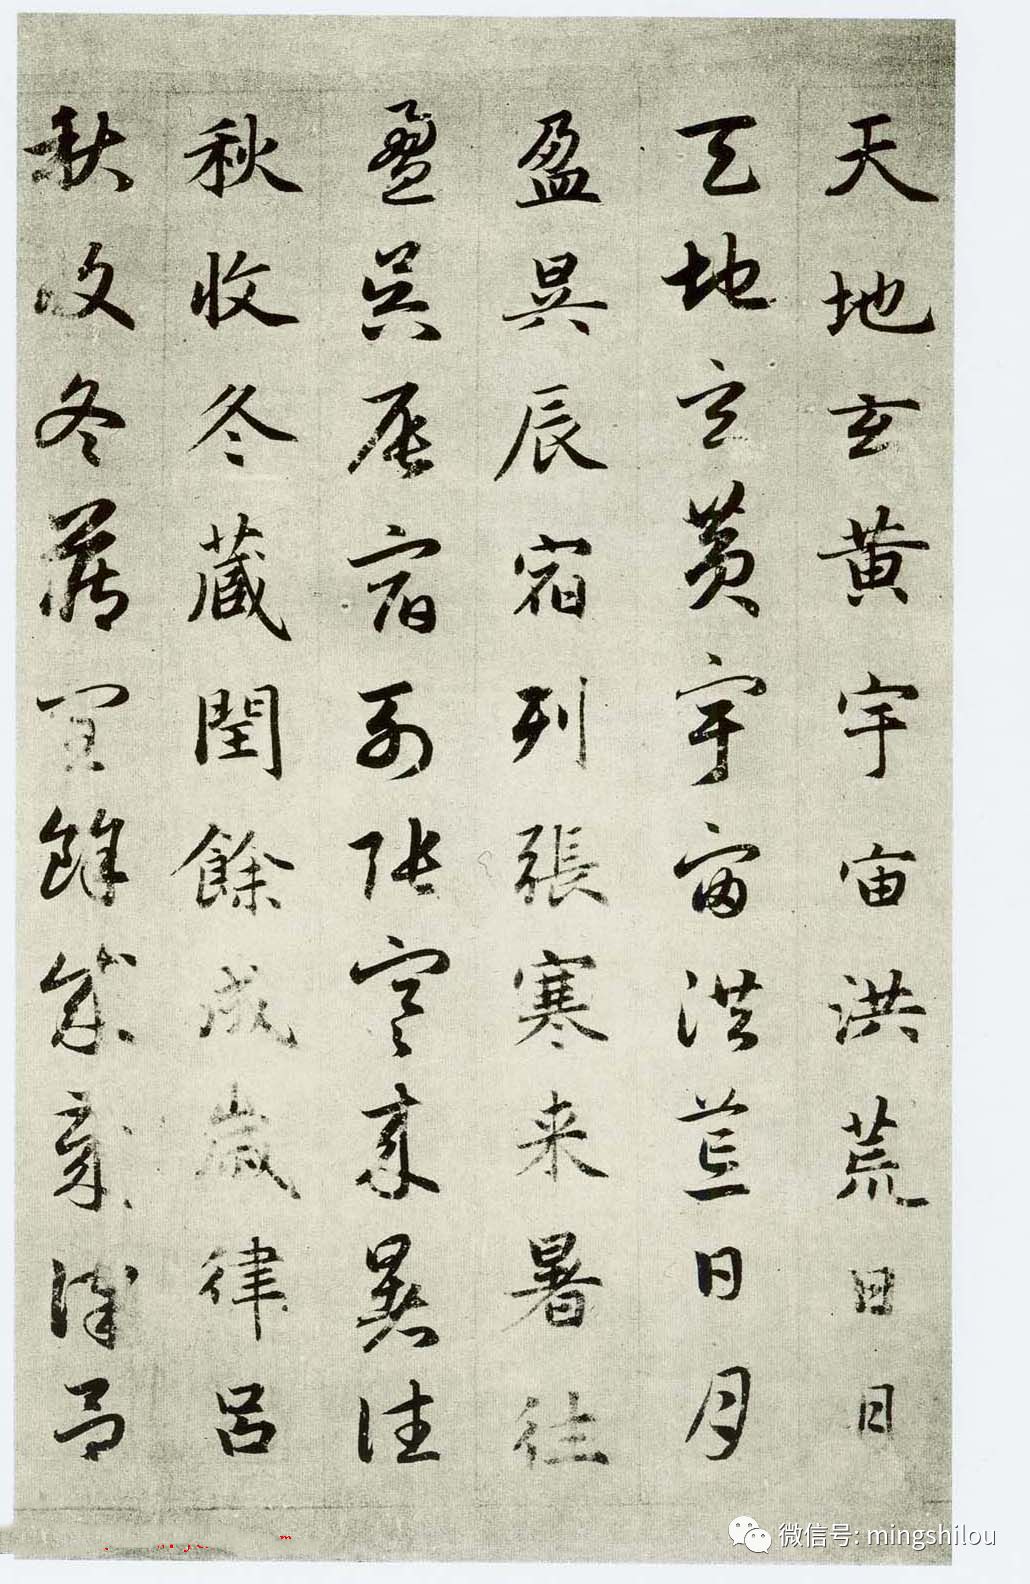 天地玄黄宇宙洪荒日日
天地玄黄宇宙洪荒日月
盈昃辰宿列張寒来暑往
盈昃辰宿列張寒来暑往
秋收冬藏閏餘成歲律呂
秋收冬藏閏餘成歲律呂
微信号: mingshilou